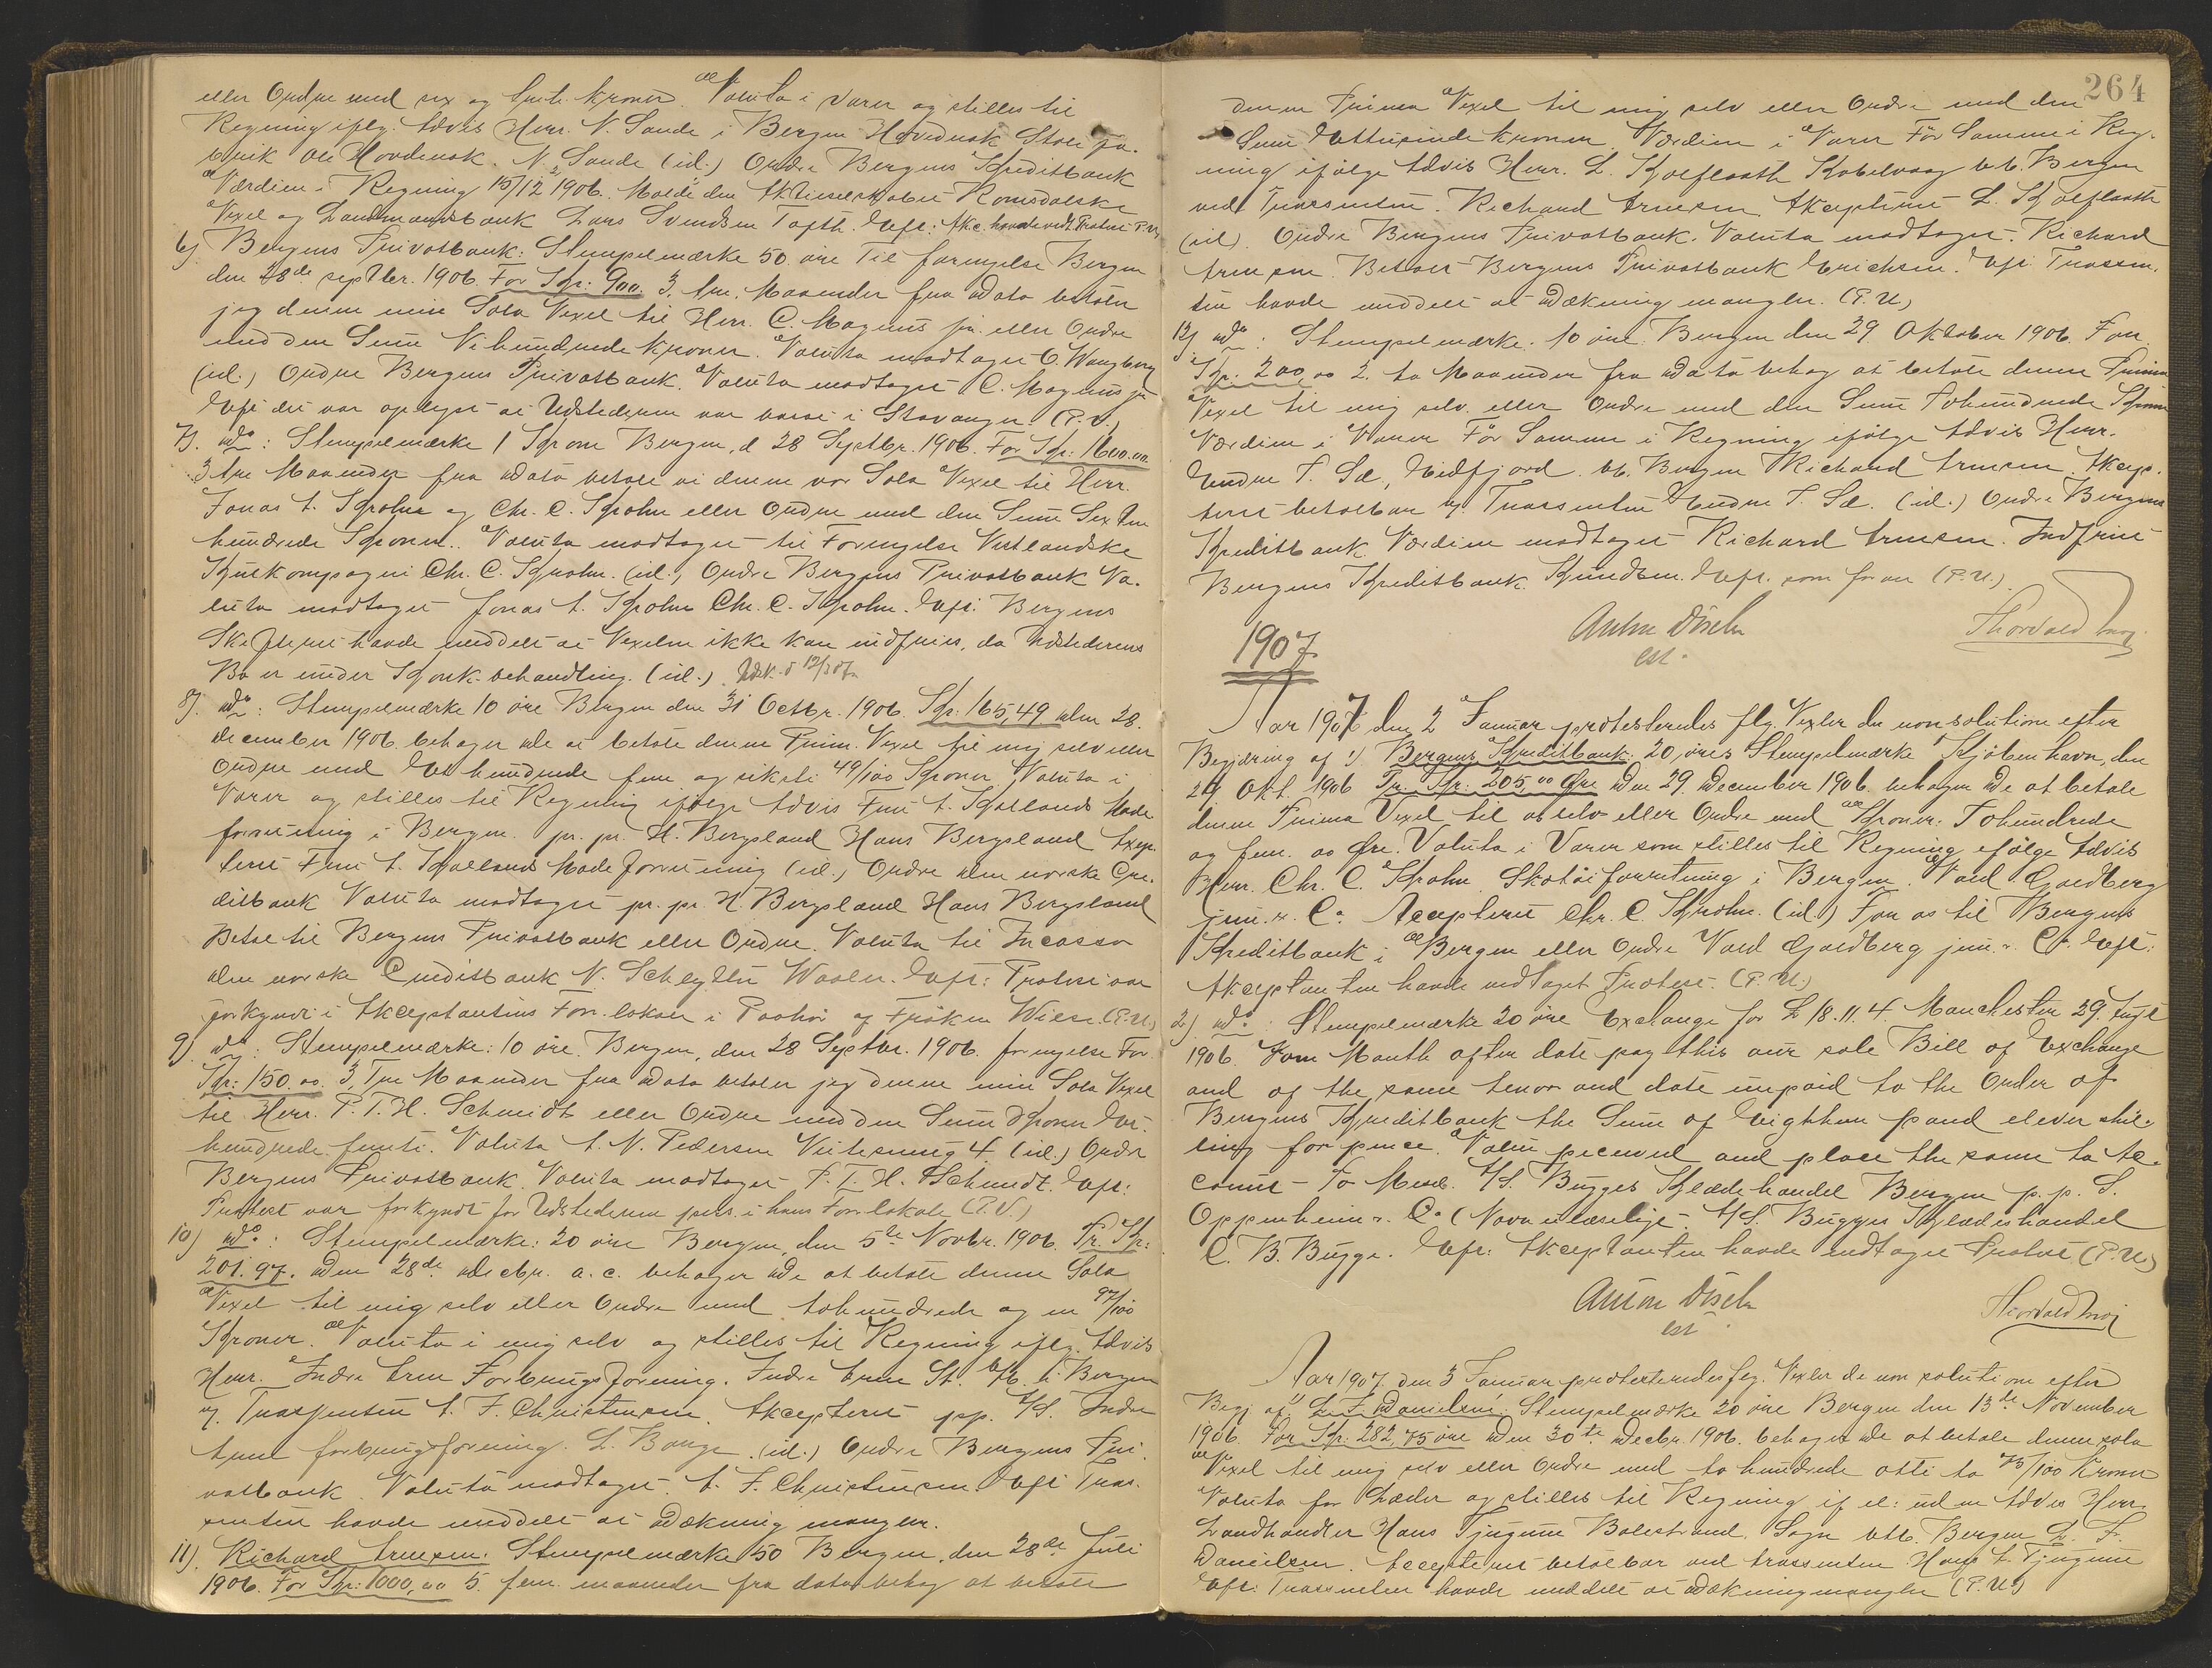 eller Ordre med sex og kroner. Valuta i varer og stilles til
Regning iflg. Advis Herr. N. Sande i Bergen Stole fa-
brik N. Sande (id.) Ordre Bergens Kreditbank
Værdien i Regning 15/12 1906. Molde den Aktieselskabet Romsdalske
Vexel og Landmandsbank Lars Svendsen Tofth. Eft: Akc. havde vedt. Protest P.U.
6) Bergens Privatbank: Stempelmærke 50 øre Til fornyelse Bergen
den 28de septbr. 1906. For Kr: 900. 3, tre, Maaneder fra dato betaler
jeg denne min Sola Vexel til Herr. C. Magnus jr. eller Ordre
med den Sum Nihundrede kroner. Valuta modtaget C. Wangberg
(id.) Ordre Bergens Privatbank. Valuta modtaget C. Magnus jr
Eft det var oplyst at Udstederen var bosat i Stavanger. (P.U.)
7). do: Stempelmærke 1 Krone Bergen, d 28 Septbr. 1906. For Kr: 1600.00
3 tre Maaneder fra dato betale vi denne vor Sola Vexel til Herr.
Jonas A. Krohn og Chr. C. Krohn eller Ordre med den Sum Sexten
hundrede Kroner. Valuta modtaget til Fornyelse Vestlandske
Chr. C. Krohn. (id.) Ordre Bergens Privatbank Va-
luta modtaget Jonas A. Krohn Chr. C. Krohn. Eft: Bergens
Skifteret havde meddelt at Vexelen ikke kan indfries, da Udstederens
Bo er under Konk. behandling. (id.)
8). do: Stempelmærke 10 øre Bergen den 31 Octbr. 1906. Kr. 165,49 den 28.
december 1906. behager de at betale denne Prim. Vexel til mig selv eller
Ordre med Et hundrede fem og seksti 49/100 Kroner, Valuta i
Varer og stilles til Regning ifølge Advis Fru A. Kollands Mode
forretning i Bergen. pr. pr. H. Bergsland Hans Bergsland Axep-
teret Fru A. Kollands Mode forretning (id.) Ordre den norske Cre-
ditbank Valuta modtaget pr. pr. H. Bergsland Hans Bergsland
Betal til Bergens Privatbank eller Ordre. Valuta til Incasso
den norske Creditbank N. Scheylter Waaler. Eft: Protest var
forkyndt i Akceptantens Forr. lokale i Paahør af Frøken Wiese. (P.U.)
9). do: Stempelmærke: 10 øre. Bergen, den 28 Septbr. 1906. fornyelse For
Kr: 150.00 3, Tre Maaneder fra dato betaler jeg denne min Sola Vexel
til Herr. P. T. H. Schmidt eller Ordre med den Sum Kroner Et-
hundrede femti. Valuta A. N. Pedersen 4. (id.) Ordre
Bergens Privatbank. Valuta modtaget P. T. H. Schmidt. Eft:
Protest var forkyndt for Udstederen pers. i hans Forr. lokale (P.U.)
10) do: Stempelmærke: 20 øre Bergen, den 5te Novbr. 1906. Pr. Kr:
201.97. den 28de decbr. a. c. behager de at betale denne Sola
Vexel til mig selv eller Ordre med tohundrede og en 97/100
Kroner. Valuta i mig selv og stilles til Regning iflg. Advis
Herr. Indre Arne Forbrugsforening. Indre Arne St. pr. Bergen
v. Trassenten A. F. Christensen. Akcepteret pp. A/S. Indre
Arne forbrugsforening. L. Borge (id.) Ordre Bergens Pri-
vatbank Valuta modtaget. A. F. Christensen Eft Tras-
senten havde meddelt at dækning mangler.
11). Richard Arnesen: Stempelmærke 50 Bergen, den 28de Juli
1906. For Kr: 1000,00 5. fem. maaneder fra dato behag at betale
264
denne Prima Vexel til mig selv eller Ordre med den
Sum Ettusinde kroner Værdien i Varer För Samme i Reg-
ning ifølge Advis Herr. L. Kolflaath Kobbelvaag pr. Bergen
ved Trassenten. Richard Arnesen Akcepteret L. Kolflaath
(id). Ordre Bergens Privatbank. Valuta modtaget. Richard
Arnesen. Betalt Bergens Privatbank Erichsen. Eft Trassen-
ten havde meddelt at dækning mangler. (P.U.)
12) do: Stempelmærke. 10 øre. Bergen den 29 Oktober 1906. For
Kr: 200,00 2. to Maaneder fra dato behag at betale denne Prima
Vexel til mig selv eller Ordre med den Sum Tohundrede Kroner
Værdien i Varer För Samme i Regning ifølge Advis Herr.
Endre T. Sæ, Eidfjord. pr. Bergen Richard Arnesen. Akcep-
teret betalbar v. Trassenten Endre T. Sæ. (id.) Ordre Bergens
Kreditbank. Værdien modtaget Richard Arnesen. Indfriet
Bergens Kreditbank Knudsen. Eft. som foran (P.U.)
1907
Aar 1907 den 2 Januar protesteredes flg. Vexler de non solutione efter
Begjæring af 1). Bergens Kreditbank. 20 øres Stempelmærke Kjøbenhavn, den
29 Okt. 1906 Pr. Kr: 205,00 Øre den 29. december 1906. behager De at betale
denne Prima Vexel til os selv eller Ordre med Kroner: Tohundrede
og fem. 00 Øre. Valuta i Varer som stilles til Regning ifølge Advis
Herr. Chr. C. Krohn. Skotöiforretning i Bergen. Vald Goldberg
jun. & Co. Accepteret Chr. C. Krohn. (id.) For os til Bergens
Kreditbank i Bergen eller Ordre Vald Goldberg jun & Co. Eft:
Akceptanten havde vedtaget Protest. (P.U.)
2.) do: Stempelmærke 20 øre Exchange for £ 18.11.4. Manchester 29. Augt
1906. Four Month after date pay this our sole Bill of Exchange
and of the same tenor and date unpaid to the Order of
Bergens Kreditbank the Sum of Eighteen pound eleven shil-
ling for pence. Value received and place the same to Ac-
count To Messrs. A/S. Bugges Klædehandel Bergen p. p. S.
Oppenheim & Co (Navn ulæselig). A/S. Bugges Klædeshandel
C. B. Bugge. Eft: Akceptanten havde vedtaget Protest (P.U.)
Aar 1907 den 3 Januar protesteredes flg. Vexler de non solutione efter
Begj. af 1) L. F. Danielsen: Stempelmærke 20 øre Bergen den 13de November
1906. For Kr. 282,75 øre den 30te Decbr. 1906. behager de at betale denne sola
Vexel til mig selv eller Ordre med to hundrede otti to 75/100 Kroner
Valuta for Læder og stilles til Regning if el: uden Advis Herr.
Landhandler Hans Tjugum Balestrand. Sogn pr. Bergen L. F.
Danielsen. Accepteret betalbar ved trassenten Hans A. Tjugum
Eft: Trassenten havde meddelt at dækning mangler (P.U.)